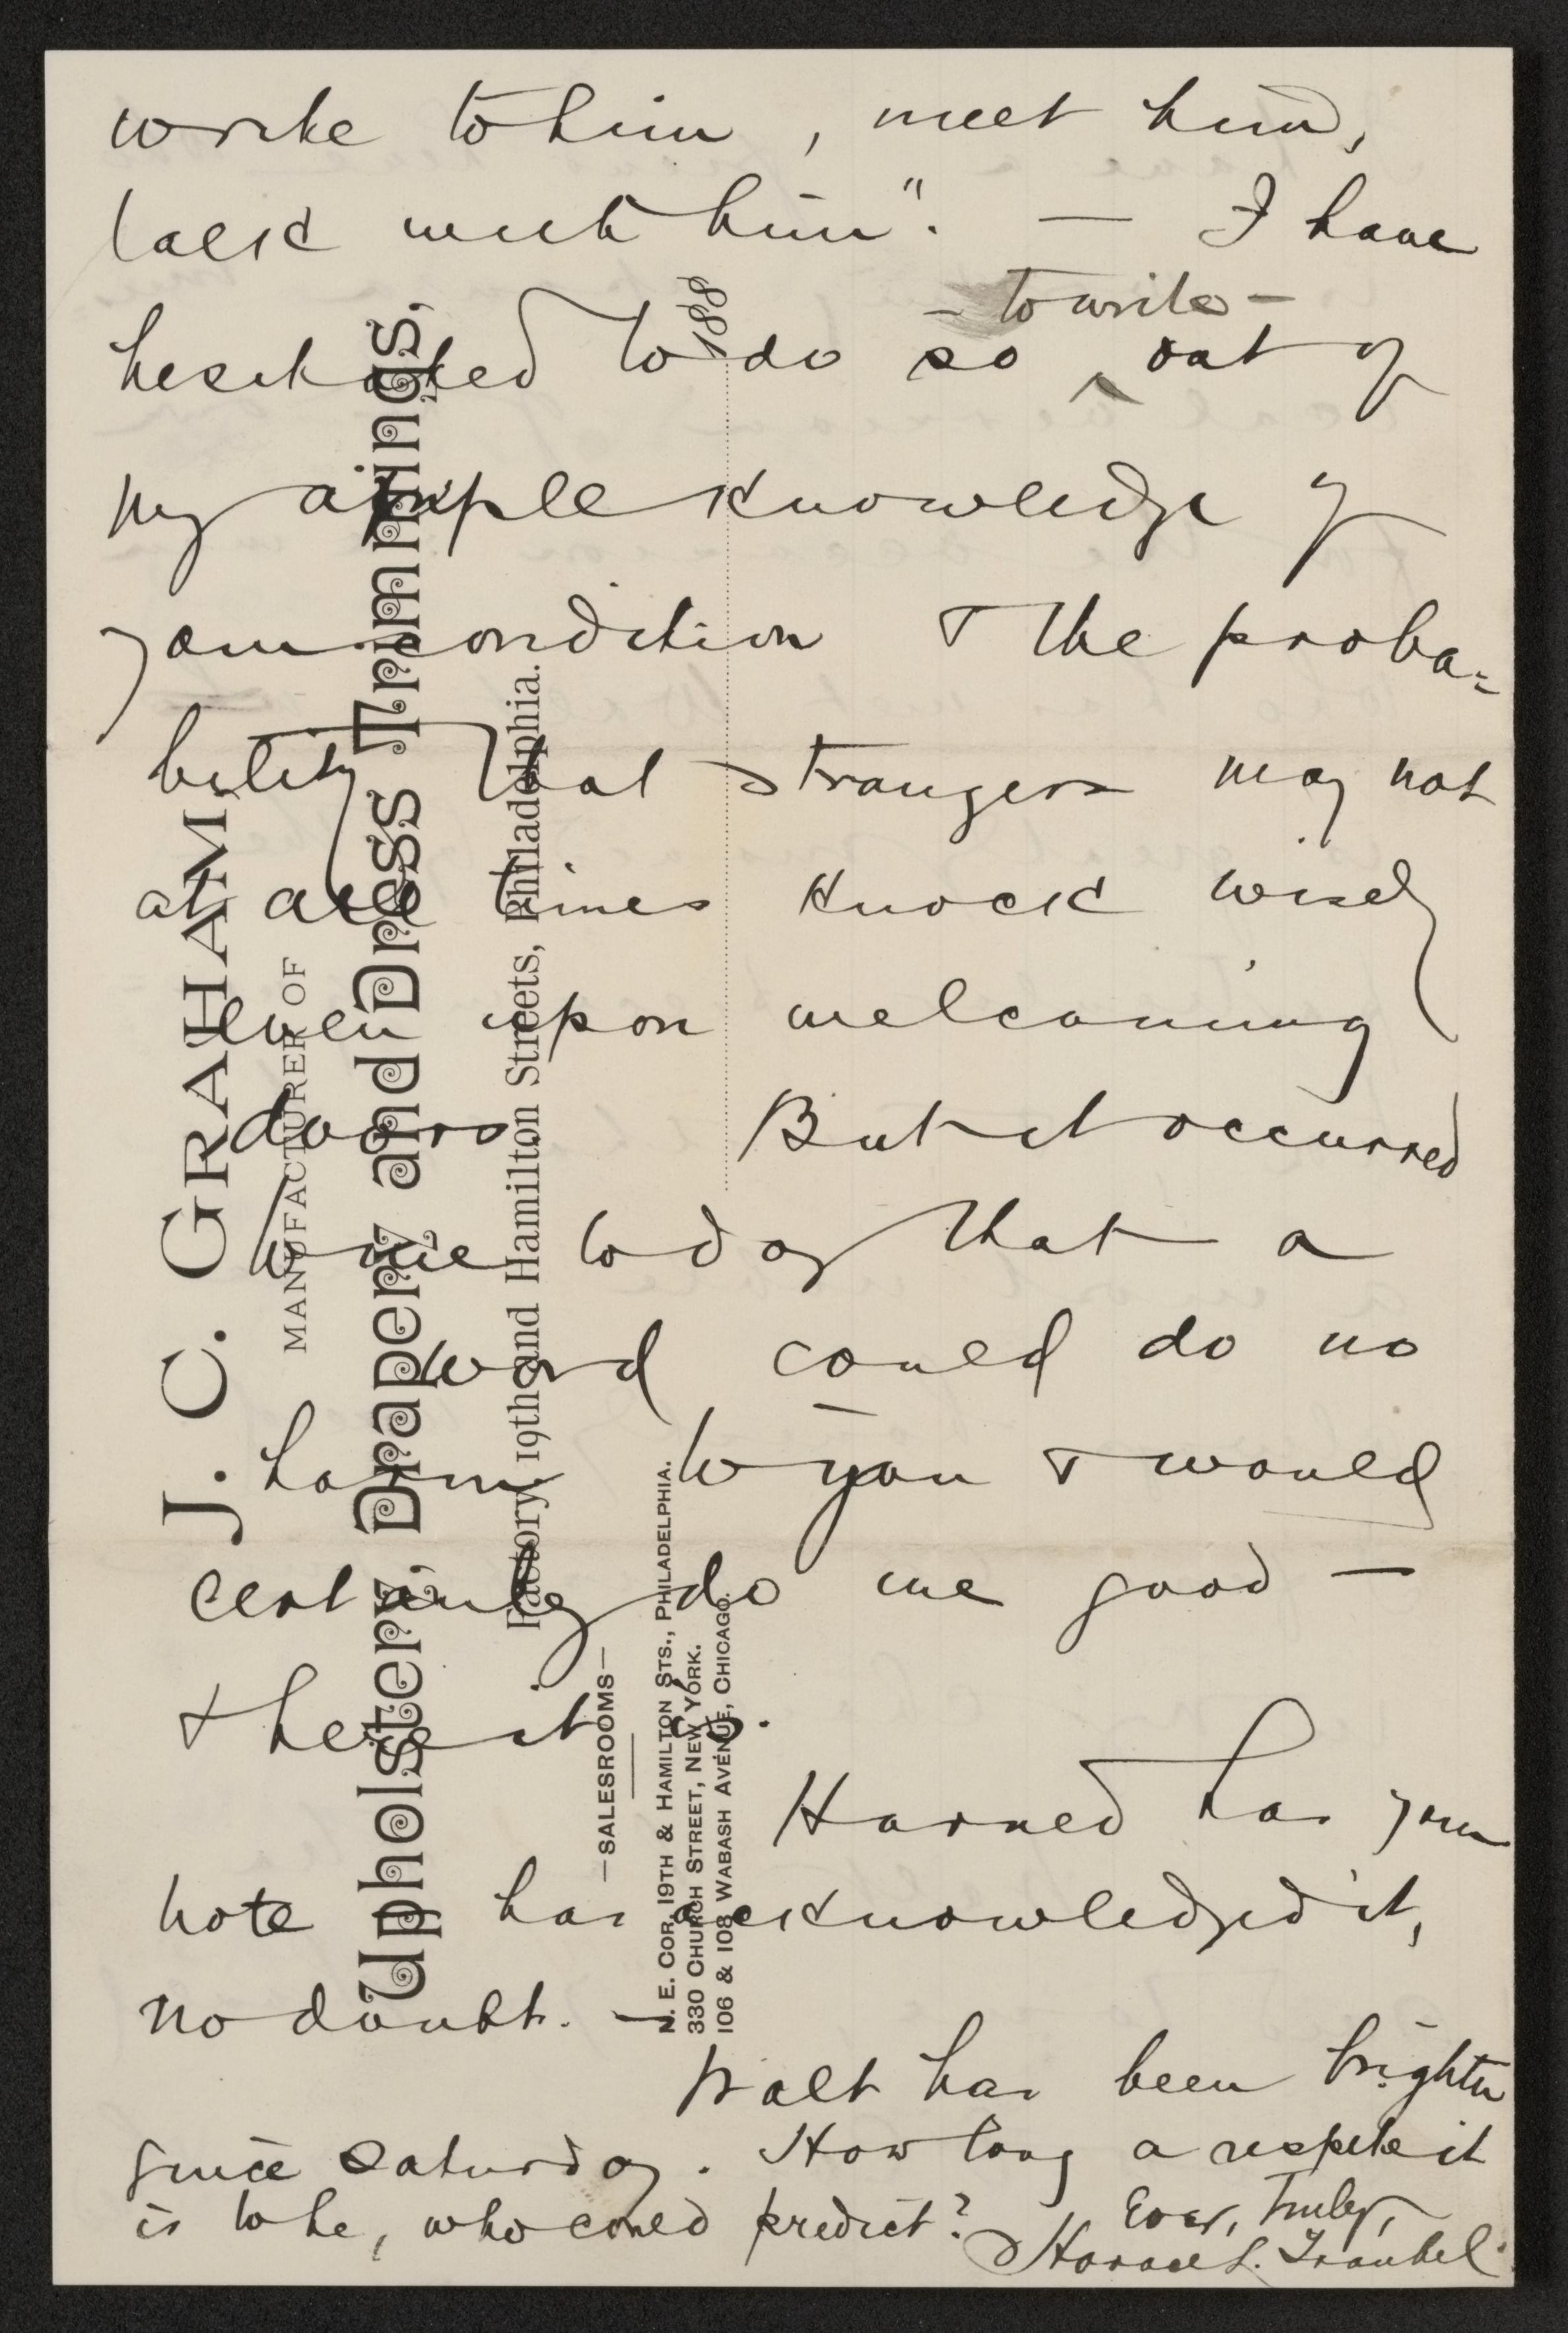 write to him, meet him,
talk with him". — I have
– to write –
hesitated to do so ^ out of
my ample knowledge of
your condition & the proba=
bility that strangers may not
at all times knock wisely
even upon welcoming
doors. But it occurred
to me today that a
word could do no
harm to you & would
certainly do me good —
& here it is.
Harned has your
note has acknowledged it,
no doubt. —
Walt has been brighter
since Saturday. How long a respite it
is to be, who could predict?
Ever, truly,
Horace L. Traubel
J. C. GRAHAM,
MANUFACTURER OF
Upholstery, Drapery and Dress Trimmings,
Factory, 19th and Hamilton Streets, Philadelphia.
—SALESROOMS—
N. E. COR. 19TH & HAMILTON STS., PHILADELPHIA.
330 CHURCH STREET, NEW YORK.
106 & 108 WABASH AVENUE, CHICAGO.
188